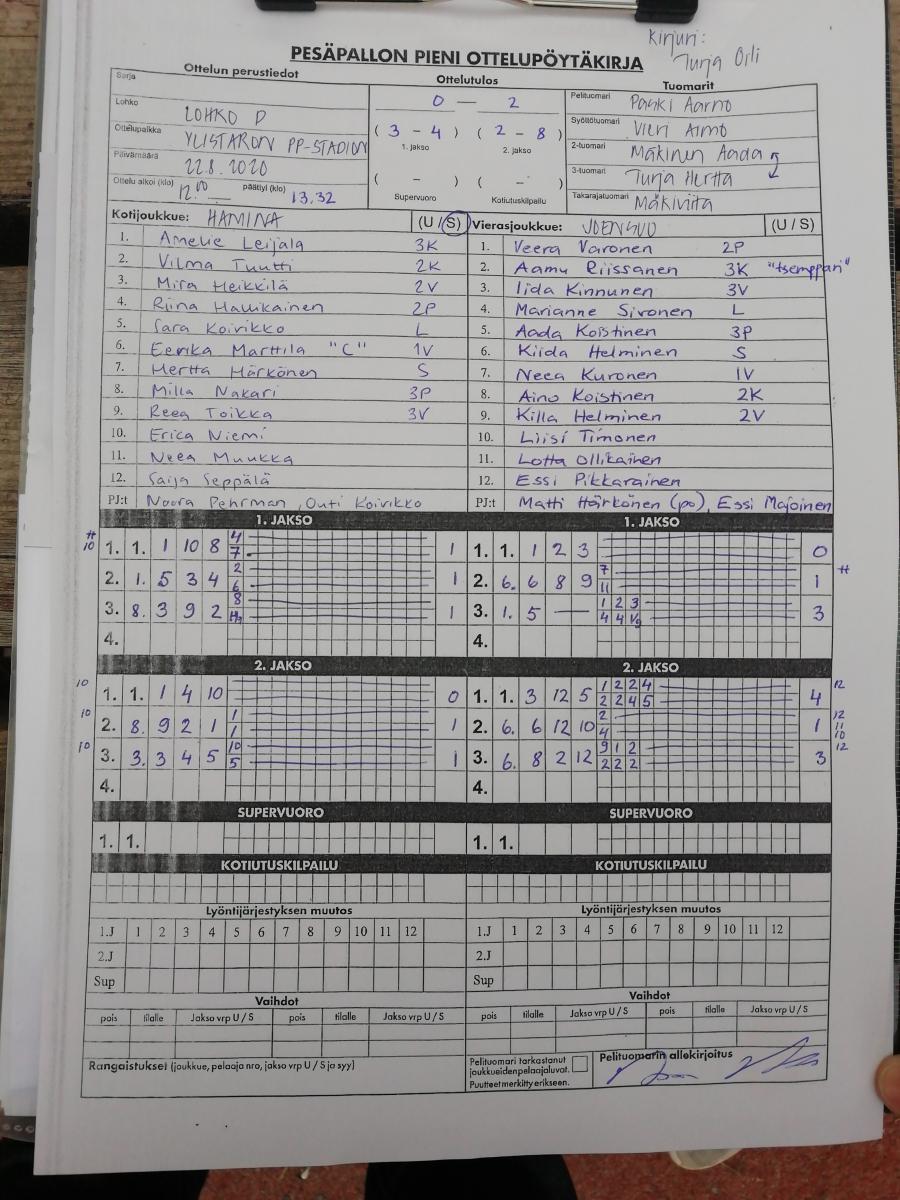 Kirjuri:
Turja Orli
PESÄPALLON PIENI OTTELUPÖYTÄKIRJA
Ottelun perustiedot Ottelutulos Tuomarit
Sarja
Lohko LOHKO D
Ottelupaikka YLISTARON PP-STADION
Päivämäärä 22.8.2020
Ottelu alkoi (klo) 12.00 päättyi (klo) 13.32
0 — 2
( 3 - 4 ) ( 2 - 8 )
1. jakso 2. jakso
( - ) ( - )
Supervuoro Kotiutuskilpailu
Pelituomari Paski Aarno
Syöttötuomari Vieri Aimo
2-tuomari Mäkinen Aada
3-tuomari Turja Hertta
Takarajatuomari Mäkiviita
Kotijoukkue: HAMINA (U / S)
1. Amelie Leijala 3K
2. Vilma Tuutti 2K
3. Mira Heikkilä 2V
4. Riina Haukainen 2P
5. Sara Koivikko L
6. Eerika Marttila "C" 1V
7. Hertta Härkönen S
8. Milla Nakari 3P
9. Reea Toikka 3V
10. Erica Niemi
11. Neea Muukka
12. Saija Seppälä
PJ:t Noora Pehrman, Outi Koivikko
Vierasjoukkue: JOENSUU (U / S)
1. Veera Varonen 2P
2. Aamu Riissanen 3K "tsemppari"
3. Iida Kinnunen 3V
4. Marianne Sivonen L
5. Aada Koistinen 3P
6. Kiida Helminen S
7. Neea Kuronen 1V
8. Aino Koistinen 2K
9. Killa Helminen 2V
10. Liisi Timonen
11. Lotta Ollikainen
12. Essi Pikkarainen
PJ:t Matti Härkönen (po), Essi Majoinen
1. JAKSO 1. JAKSO
# 10 1. 1. 1 10 8 4 7 1
2. 1. 5 3 4 2 6 1
3. 8. 3 9 2 8 1
4.
1. 1. 1 2 3 0
2. 6. 6 8 9 7 11 1 #
3. 1. 5 — 1 2 3 4 4 3
4.
2. JAKSO 2. JAKSO
10 1. 1. 1 4 10 0
10 2. 8. 9 2 1 1 1 1
10 3. 3. 3 4 5 10 5 1
4.
1. 1. 3 12 5 1 2 2 4 2 2 4 5 4 12
2. 6. 6 12 10 2 4 1 12 11 10
3. 6. 8 2 12 9 1 2 2 2 2 3 12
4.
SUPERVUORO SUPERVUORO
1. 1. 1. 1.
KOTIUTUSKILPAILU KOTIUTUSKILPAILU
Lyöntijärjestyksen muutos Lyöntijärjestyksen muutos
1.J 1 2 3 4 5 6 7 8 9 10 11 12 1.J 1 2 3 4 5 6 7 8 9 10 11 12
2.J 2.J
Sup Sup
Vaihdot Vaihdot
pois tilalle Jakso vrp U / S pois tilalle Jakso vrp U / S pois tilalle Jakso vrp U / S pois tilalle Jakso vrp U / S
Rangaistukset (joukkue, pelaaja nro, jakso vrp U / S ja syy)
Pelituomari tarkastanut
joukkueidenpelaajaluvat.
Puutteet merkitty erikseen.
Pelituomarin allekirjoitus